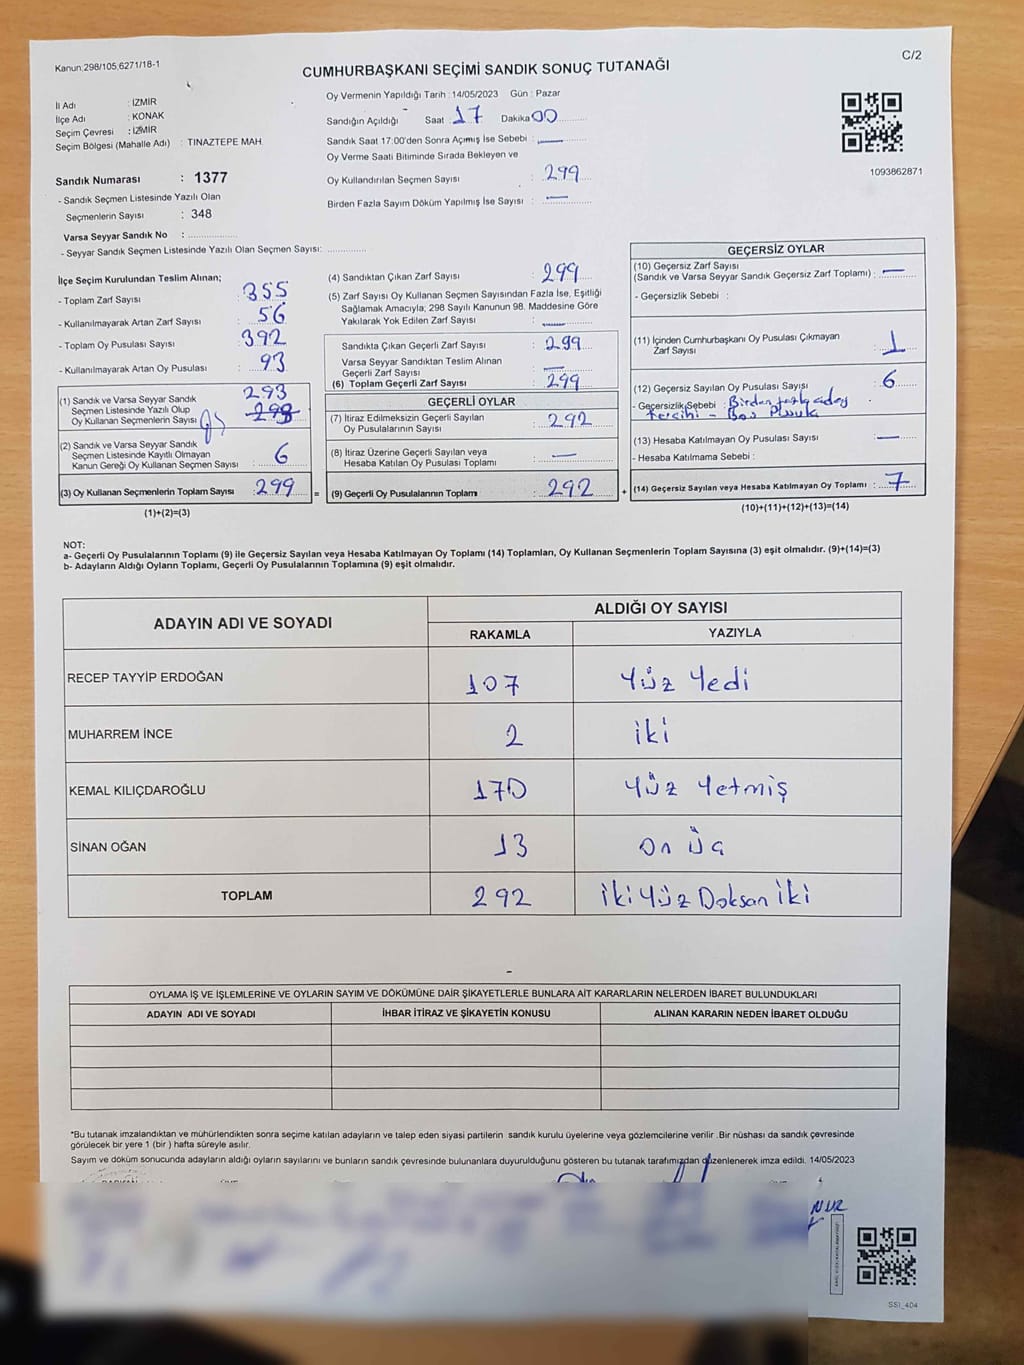 Kanun:298/105,6271/18-1
C/2
CUMHURBAŞKANI SEÇİMİ SANDIK SONUÇ TUTANAĞI
İl Adı : İZMİR
İlçe Adı : KONAK
Seçim Çevresi : İZMİR
Seçim Bölgesi (Mahalle Adı) : TINAZTEPE MAH.
Sandık Numarası : 1377
- Sandık Seçmen Listesinde Yazılı Olan
Seçmenlerin Sayısı : 348
Varsa Seyyar Sandık No :
- Seyyar Sandık Seçmen Listesinde Yazılı Olan Seçmen Sayısı:
Oy Vermenin Yapıldığı Tarih : 14/05/2023 Gün : Pazar
Sandığın Açıldığı Saat : 17 Dakika 00
Sandık Saat 17:00'den Sonra Açımış İse Sebebi : —
Oy Verme Saati Bitiminde Sırada Bekleyen ve
Oy Kullandırılan Seçmen Sayısı : 299
Birden Fazla Sayım Döküm Yapılmış İse Sayısı : —
1093862871
İlçe Seçim Kurulundan Teslim Alınan;
- Toplam Zarf Sayısı : 355
- Kullanılmayarak Artan Zarf Sayısı : 56
- Toplam Oy Pusulası Sayısı : 392
- Kullanılmayarak Artan Oy Pusulası : 93
(1) Sandık ve Varsa Seyyar Sandık
Seçmen Listesinde Yazılı Olup
Oy Kullanan Seçmenlerin Sayısı : 293
(2) Sandık ve Varsa Seyyar Sandık
Seçmen Listesinde Kayıtlı Olmayan
Kanun Gereği Oy Kullanan Seçmen Sayısı : 6
(3) Oy Kullanan Seçmenlerin Toplam Sayısı : 299 =
(1)+(2)=(3)
(4) Sandıktan Çıkan Zarf Sayısı : 299
(5) Zarf Sayısı Oy Kullanan Seçmen Sayısından Fazla İse, Eşitliği
Sağlamak Amacıyla; 298 Sayılı Kanunun 98. Maddesine Göre
Yakılarak Yok Edilen Zarf Sayısı : —
Sandıkta Çıkan Geçerli Zarf Sayısı : 299
Varsa Seyyar Sandıktan Teslim Alınan
Geçerli Zarf Sayısı : —
(6) Toplam Geçerli Zarf Sayısı : 299
GEÇERLİ OYLAR
(7) İtiraz Edilmeksizin Geçerli Sayılan
Oy Pusulalarının Sayısı : 292
(8) İtiraz Üzerine Geçerli Sayılan veya
Hesaba Katılan Oy Pusulası Toplamı : —
(9) Geçerli Oy Pusulalarının Toplamı : 292 +
GEÇERSİZ OYLAR
(10) Geçersiz Zarf Sayısı
(Sandık ve Varsa Seyyar Sandık Geçersiz Zarf Toplamı) : —
- Geçersizlik Sebebi :
(11) İçinden Cumhurbaşkanı Oy Pusulası Çıkmayan
Zarf Sayısı : 1
(12) Geçersiz Sayılan Oy Pusulası Sayısı : 6
- Geçersizlik Sebebi : Birden fazla aday
tercihi - Boş Pusula
(13) Hesaba Katılmayan Oy Pusulası Sayısı : —
- Hesaba Katılmama Sebebi :
(14) Geçersiz Sayılan veya Hesaba Katılmayan Oy Toplamı : 7
(10)+(11)+(12)+(13)=(14)
NOT:
a- Geçerli Oy Pusulalarının Toplamı (9) ile Geçersiz Sayılan veya Hesaba Katılmayan Oy Toplamı (14) Toplamları, Oy Kullanan Seçmenlerin Toplam Sayısına (3) eşit olmalıdır. (9)+(14)=(3)
b- Adayların Aldığı Oyların Toplamı, Geçerli Oy Pusulalarının Toplamına (9) eşit olmalıdır.
ADAYIN ADI VE SOYADI
ALDIĞI OY SAYISI
RAKAMLA YAZIYLA
RECEP TAYYİP ERDOĞAN 107 Yüz Yedi
MUHARREM İNCE 2 iki
KEMAL KILIÇDAROĞLU 170 Yüz Yetmiş
SİNAN OĞAN 13 On üç
TOPLAM 292 İki Yüz Doksan İki
OYLAMA İŞ VE İŞLEMLERİNE VE OYLARIN SAYIM VE DÖKÜMÜNE DAİR ŞİKAYETLERLE BUNLARA AİT KARARLARIN NELERDEN İBARET BULUNDUKLARI
ADAYIN ADI VE SOYADI İHBAR İTİRAZ VE ŞİKAYETİN KONUSU ALINAN KARARIN NEDEN İBARET OLDUĞU
*Bu tutanak imzalandıktan ve mühürlendikten sonra seçime katılan adayların ve talep eden siyasi partilerin sandık kurulu üyelerine veya gözlemcilerine verilir .Bir nüshası da sandık çevresinde
görülecek bir yere 1 (bir ) hafta süreyle asılır.
Sayım ve döküm sonucunda adayların aldığı oyların sayılarını ve bunların sandık çevresinde bulunanlara duyurulduğunu gösteren bu tutanak tarafımızdan düzenlenerek imza edildi. 14/05/2023
NUR
SSI_404